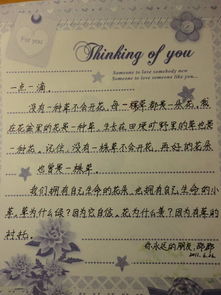 For you
Thinking of you
Someone to love somebody new
Someone to love someone like you....
一点一滴
没有一种草不会开花,每一棵草都是一朵花,栽
在花盆里的花是一种草,生长在田埂旷野里的草也是
一种花,记住,没有一棵草不会开花,再好的花朵
也曾是一棵草。
我们拥有自己生命的花朵,也拥有自己生命的小
草,草为什么绿?因为它自信,花为什么美?因为有草的
衬托。
你永远的朋友,
2011.6.26